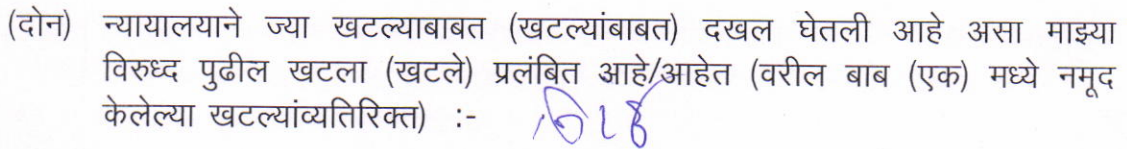 (दोन) न्यायालयाने ज्या खटल्याबाबत (खटल्यांबाबत) दखल घेतली आहे असा माझ्या
विरुध्द पुढील खटला (खटले) प्रलंबित आहे/आहेत (वरील बाब (एक) मध्ये नमूद
केलेल्या खटल्यांव्यतिरिक्त) :-